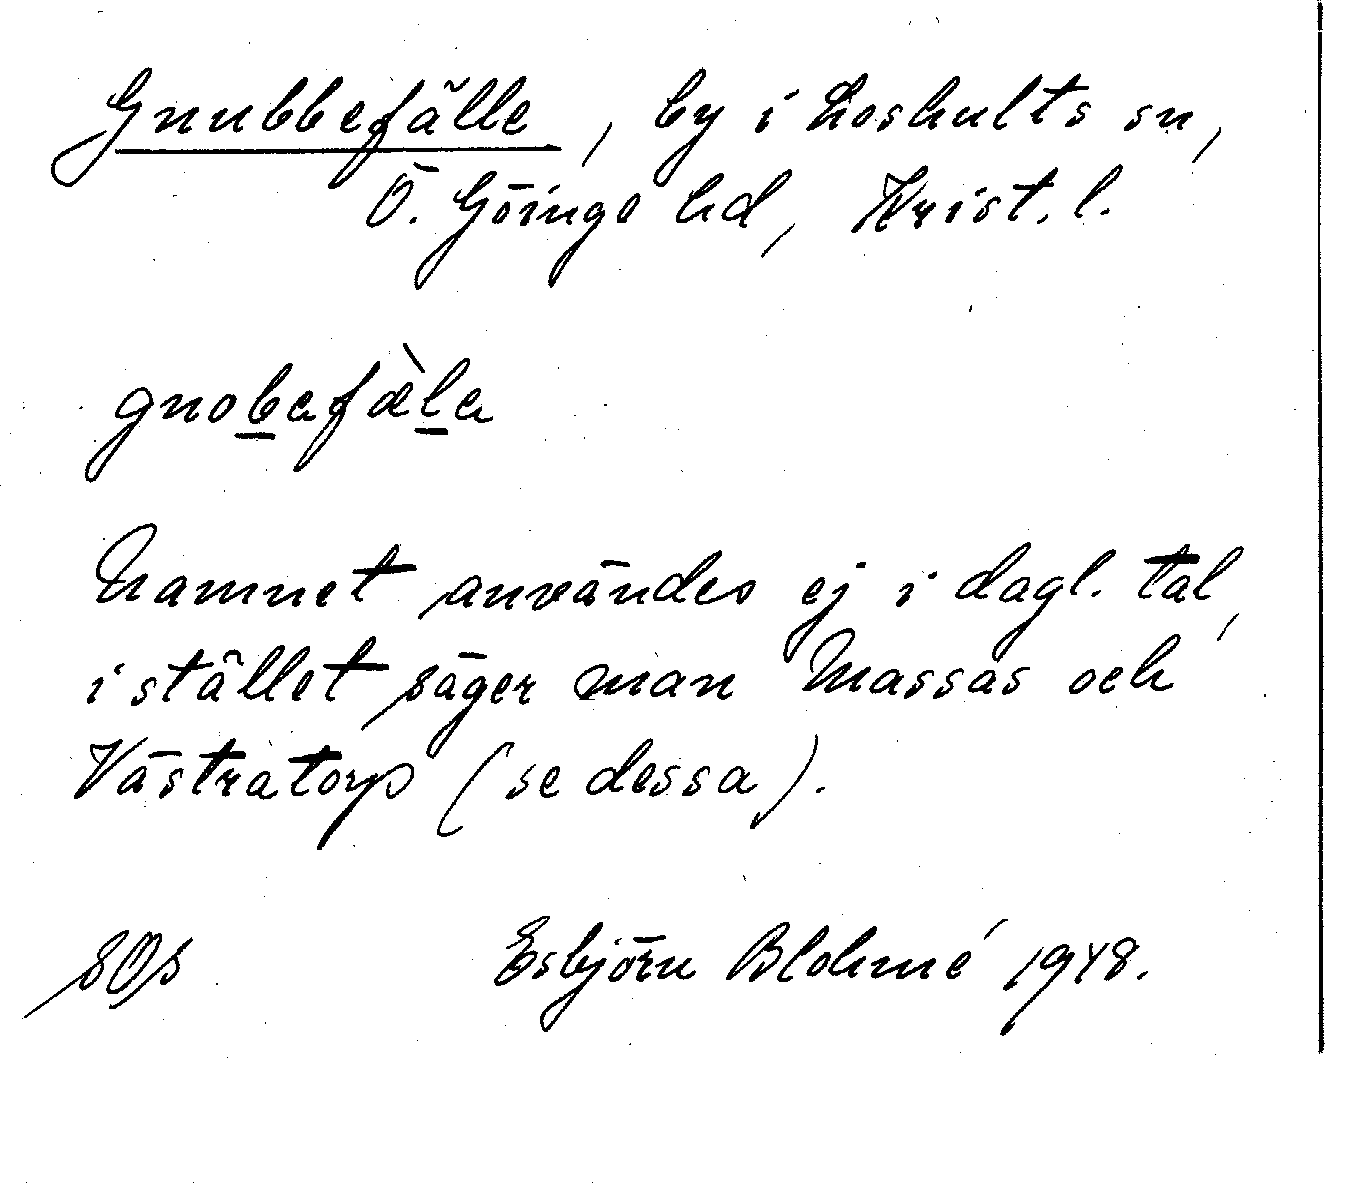 Gnubbefälle, by i Loshults sn,
Ö. Göinge hd, Krist. l.
gnobefæ̀le
Namnet användes ej i dagl. tal,
i stället säger man Massas och
Västratorp (se dessa).
SOS Esbjörn Blohmé 1948.